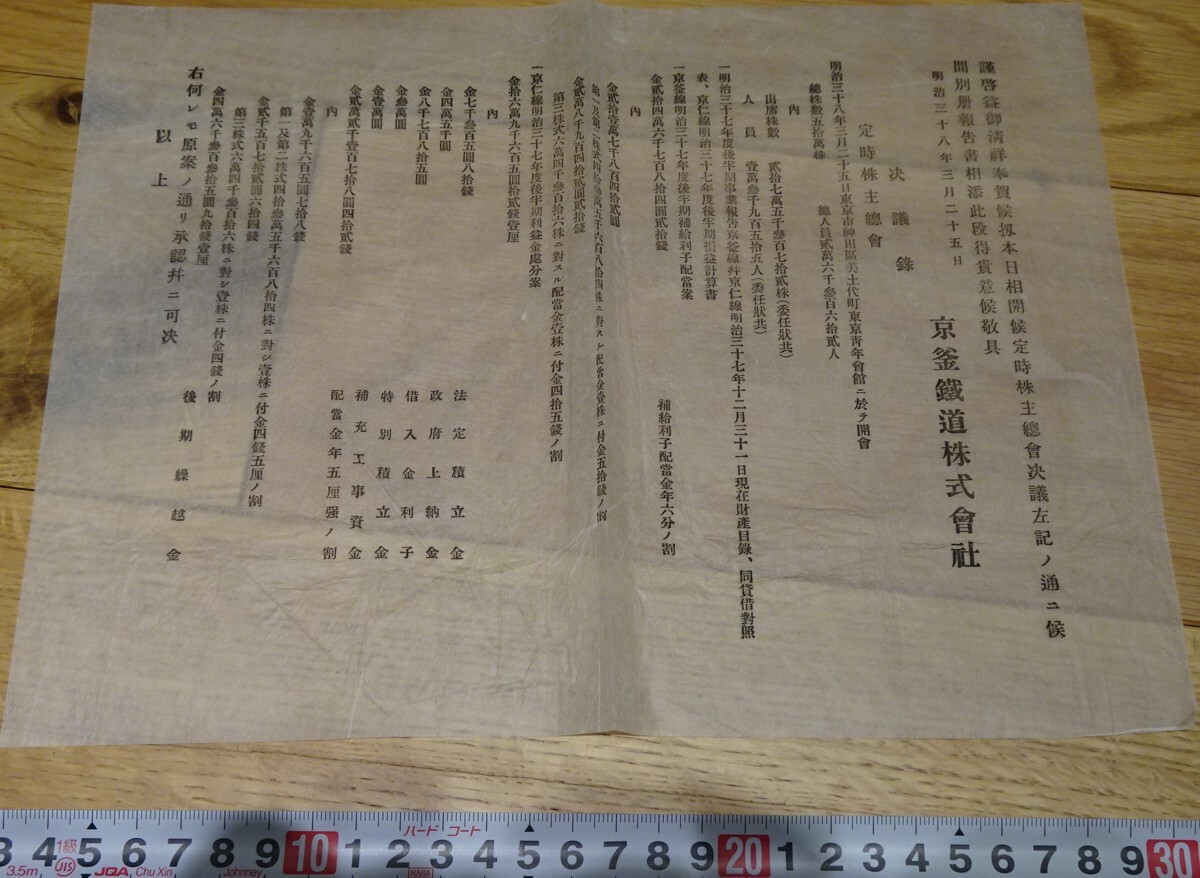 謹啓益御淸祥奉賀候扨本日相開候定時株主總會決議左記ノ通ニ候
間別册報告書相添此段得貴意候敬具
明治三十八年三月二十五日
京釜鐵道株式會社
決議錄
定時株主總會
明治三十八年三月二十五日東京市神田區美土代町東京靑年會館ニ於テ開會
總株數五拾萬株 總人員貳萬六千叁百六拾貳人
內
出席株數 貳拾七萬五千叁百七拾貳株(委任狀共)
人員 壹萬叁千九百五拾五人(委任狀共)
一明治三十七年度後半期事業報告京釜線幷京仁線明治三十七年十二月三十一日現在財產目錄、同貸借對照
表、京仁線明治三十七年度後半期損益計算書
一京釜線明治三十七年度後半期補給利子配當案
金貳拾四萬六千七百八拾四圓貳拾錢 補給利子配當金年六分ノ割
內
金貳拾壹萬七千八百四拾貳圓
第一及第二株式四拾叁萬五千六百八拾四株ニ對スル配當金壹株ニ付金五拾錢ノ割
金貳萬八千九百四拾貳圓貳拾錢
第三株式六萬四千叁百拾六株ニ對スル配當金壹株ニ付金四拾五錢ノ割
一京仁線明治三十七年度後半期利益金處分案
金拾六萬九千六百五圓貳錢壹厘
內
金七千叁百五圓八拾錢 法定積立金
金四萬五千圓 政府上納金
金八千七百八拾五圓 借入金利子
金叁萬圓 特別積立金
金壹萬圓 補充工事資金
金貳萬貳千壹百七拾八圓四拾貳錢 配當金年五厘强ノ割
內
金壹萬九千六百五圓七拾八錢
第一及第二株式四拾叁萬五千六百八拾四株ニ對シ壹株ニ付金四錢五厘ノ割
金貳千五百七拾貳圓六拾四錢
第三株式六萬四千叁百拾六株ニ對シ壹株ニ付金四錢ノ割
金四萬六千叁百叁拾五圓九拾錢壹厘 後期繰越金
右何レモ原案ノ通リ承認幷ニ可決
以上
ハード コート
3 4 5 6 7 8 9 10 1 2 3 4 5 6 7 8 9 20 1 2 3 4 5 6 7 8 9 30
1級
3.5m JIS JQA Chu Xin Johnney HARA